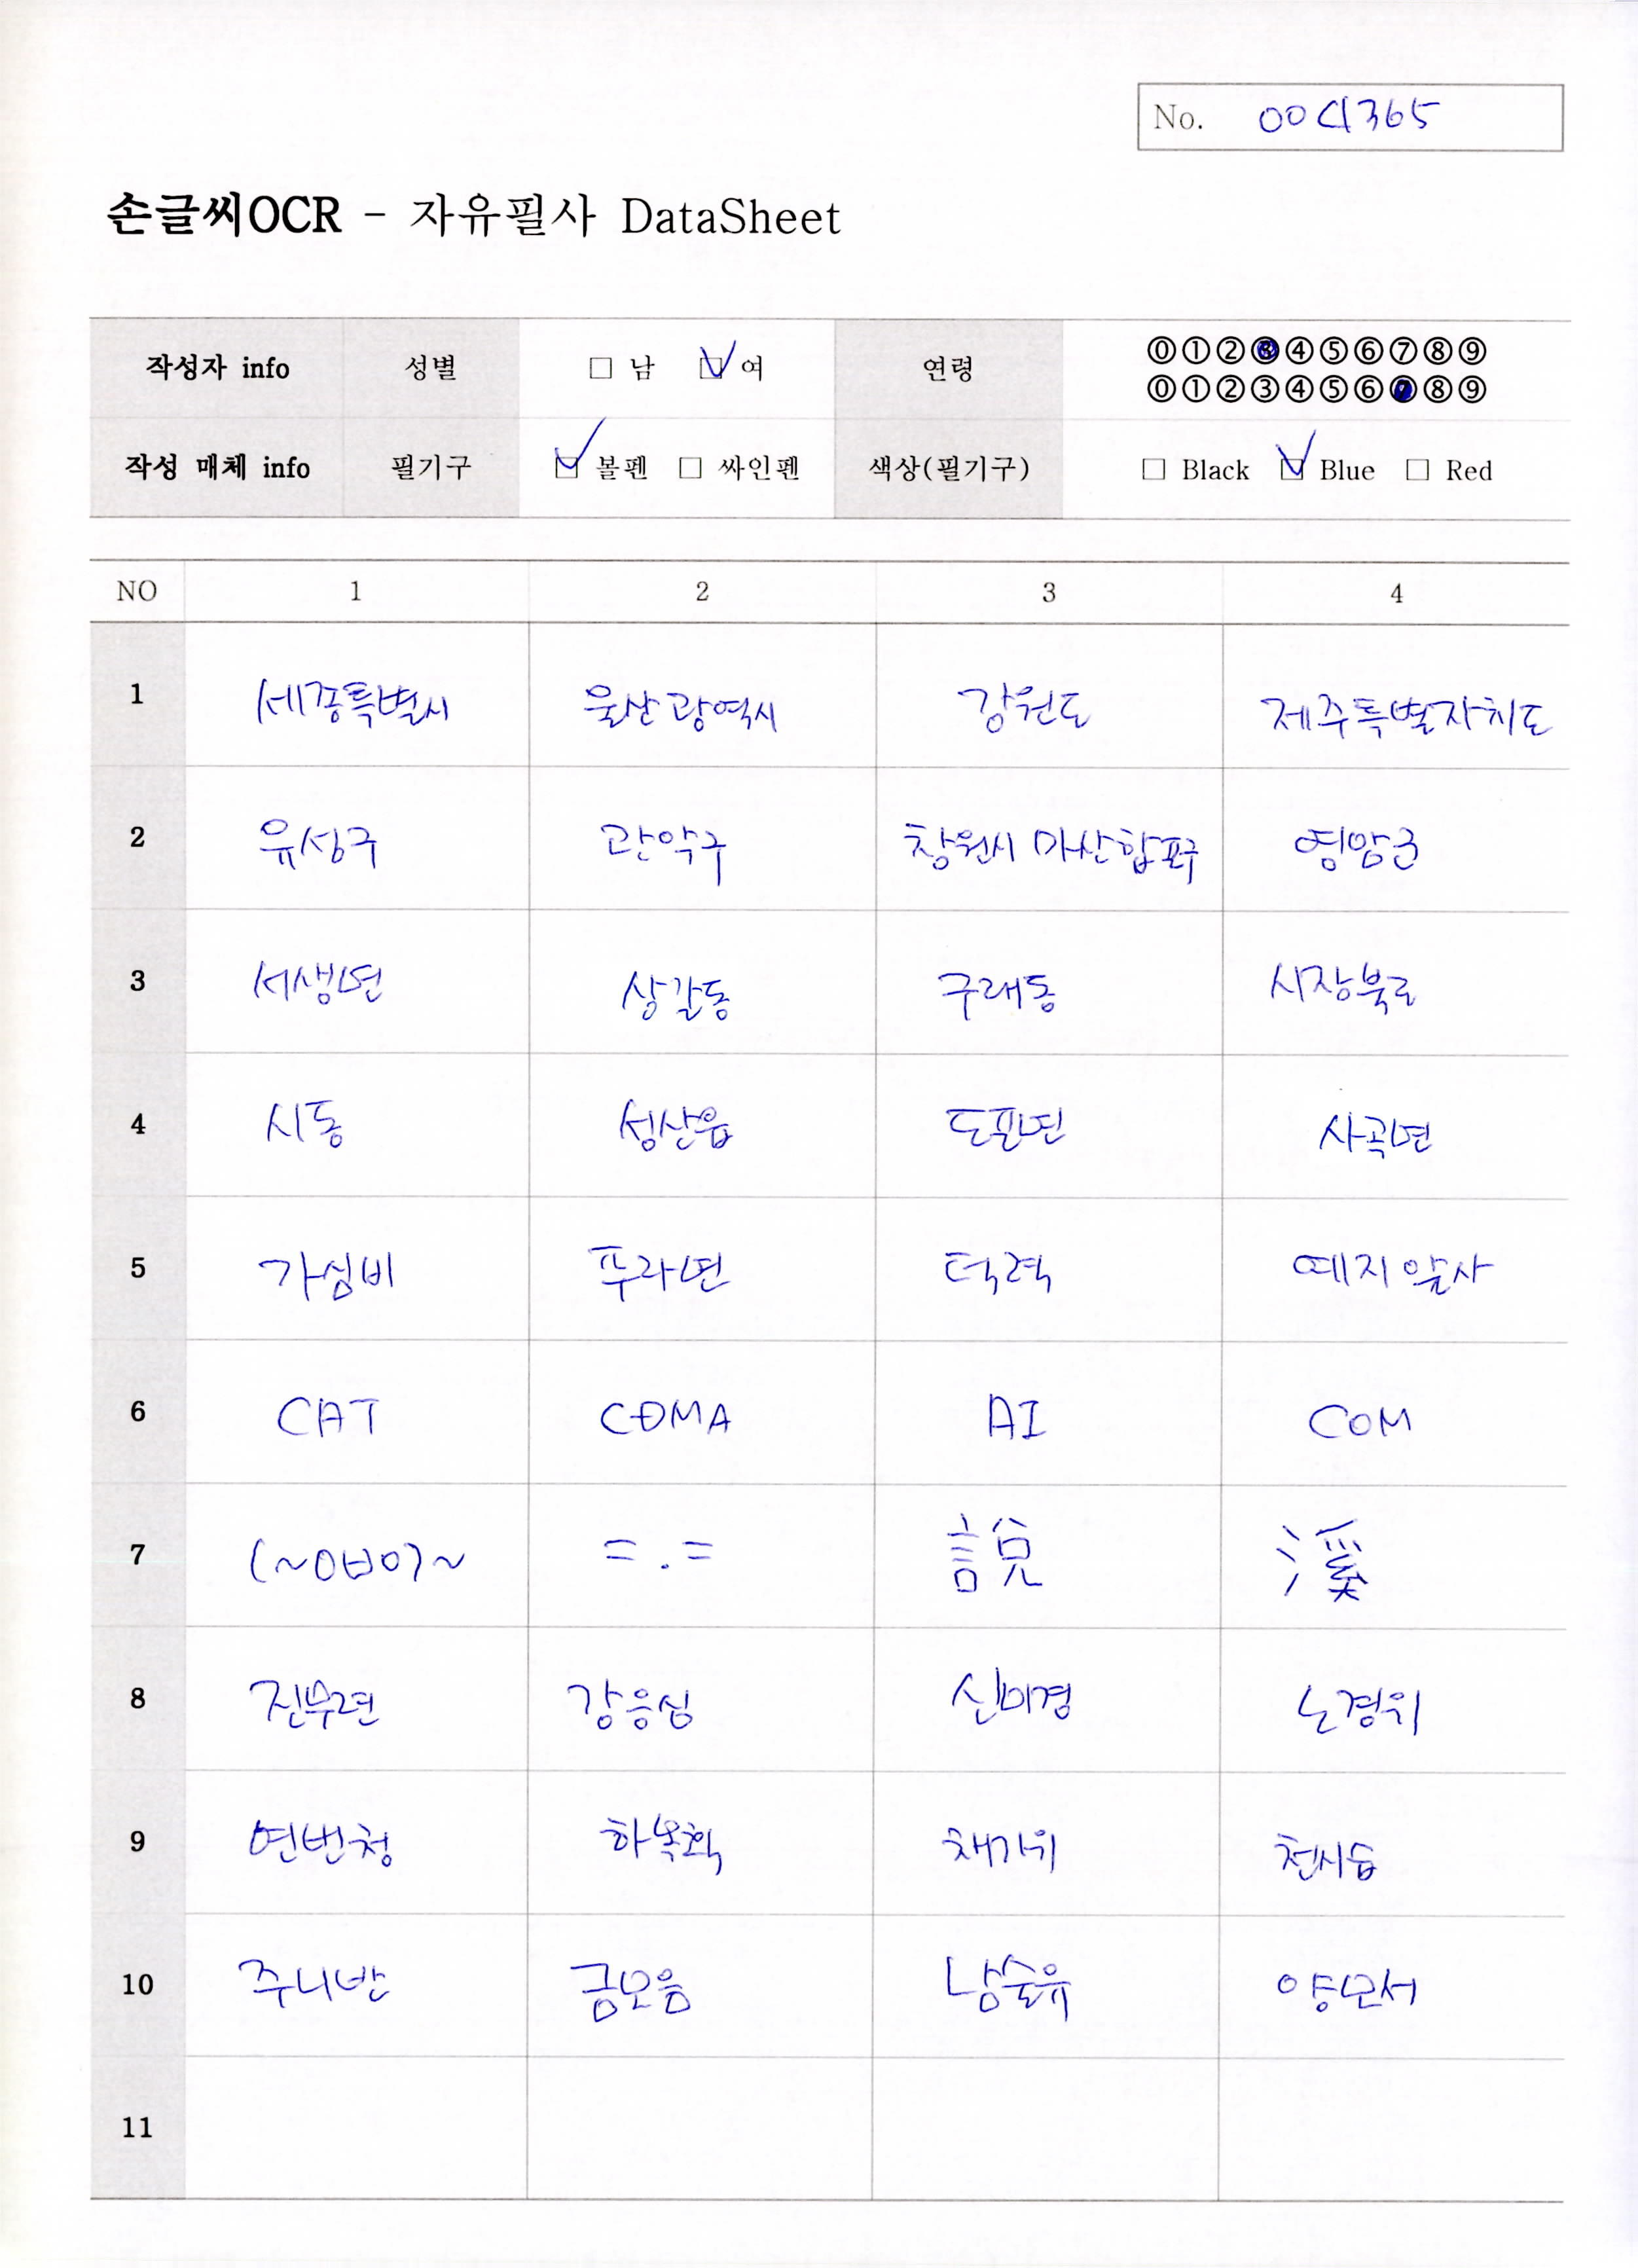 No. 004365
손글씨OCR - 자유필사 DataSheet
작성자 info 성별 □ 남 ☑ 여 연령 ⓪①②③④⑤⑥⑦⑧⑨
⓪①②③④⑤⑥⑦⑧⑨
작성 매체 info 필기구 ☑ 볼펜 □ 싸인펜 색상(필기구) □ Black ☑ Blue □ Red
NO 1 2 3 4
1 세종특별시 울산광역시 강원도 제주특별자치도
2 유성구 관악구 창원시 마산합포구 영암군
3 서생면 상갈동 구래동 시장북로
4 시동 성산읍 도포면 사곡면
5 가심비 푸라면 덕력 예지앞사
6 CAT CDMA AI COM
7 (~OㅂO)~ =.= 說 溪
8 진부면 강응심 신미경 노경위
9 연번청 하옥획 채가위 천시습
10 주니반 금모음 남술유 양모서
11